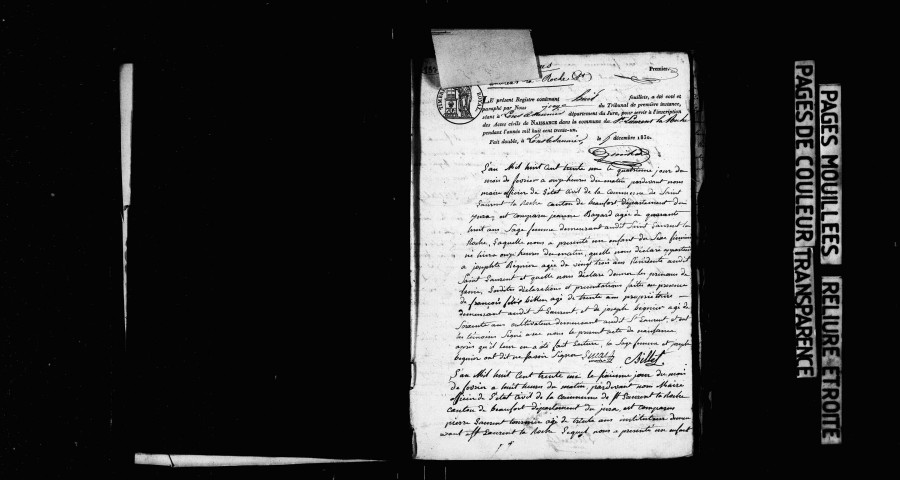 Premier.
LE présent Registre contenant huit feuillets, a été coté et
paraphé par Nous du Tribunal de première instance,
séant à Lons-le-Saunier département du Jura, pour servir à l'inscription
des Actes civils de NAISSANCE dans la commune de St Laurent la Roche
pendant l'année mil huit cent trente-un.
Fait double, à Lons-le-Saunier, le décembre 1830.
L'an Mil huit Cent trente une le quatrième jour du
mois de fevrier a onze heures du matin pardevant nous
maire officier de l'état civil de la commune de Saint
Laurent la Roche canton de beaufort département du
jura, est comparu jeanne Bayard agée de quarante
huit ans, Sage femme demeurant audit Saint Laurent la
Roche, Laquelle nous a presenté un enfant du Sexe feminin
né hier onze heures du matin, quelle nous declaré appartenir
a josephte Regnier agée de vingt trois ans Residente audit
Saint Laurent et quelle nous declare donner les prenoms de
fanie, Lesdites déclarations et presentations faites en presence
de françois billet agé de trente ans propriétaire
demeurant audit St Laurent, et de joseph begnier agé de
Soixante ans cultivateur demeurant audit St Laurent, et ont
les témoins Signé avec nous le present acte de naissance
après qu'il leur en a été fait lecture, la Sage femme et joseph
begnier ont dit ne savoir Signer Billet
L'an Mil huit Cent trente une le jour du mois
de fevrier a huit heures du matin pardevant nous Maire
officier de l'état civil de la commune de St Laurent la Roche
canton de beaufort département du jura est comparu
pierre Laurent agé de trente ans instituteur demeu
rant St Laurent la Roche Lequel nous a presenté un enfant
PAGES MOUILLEES RELIURE ETROITE
PAGES DE COULEUR TRANSPARENCE